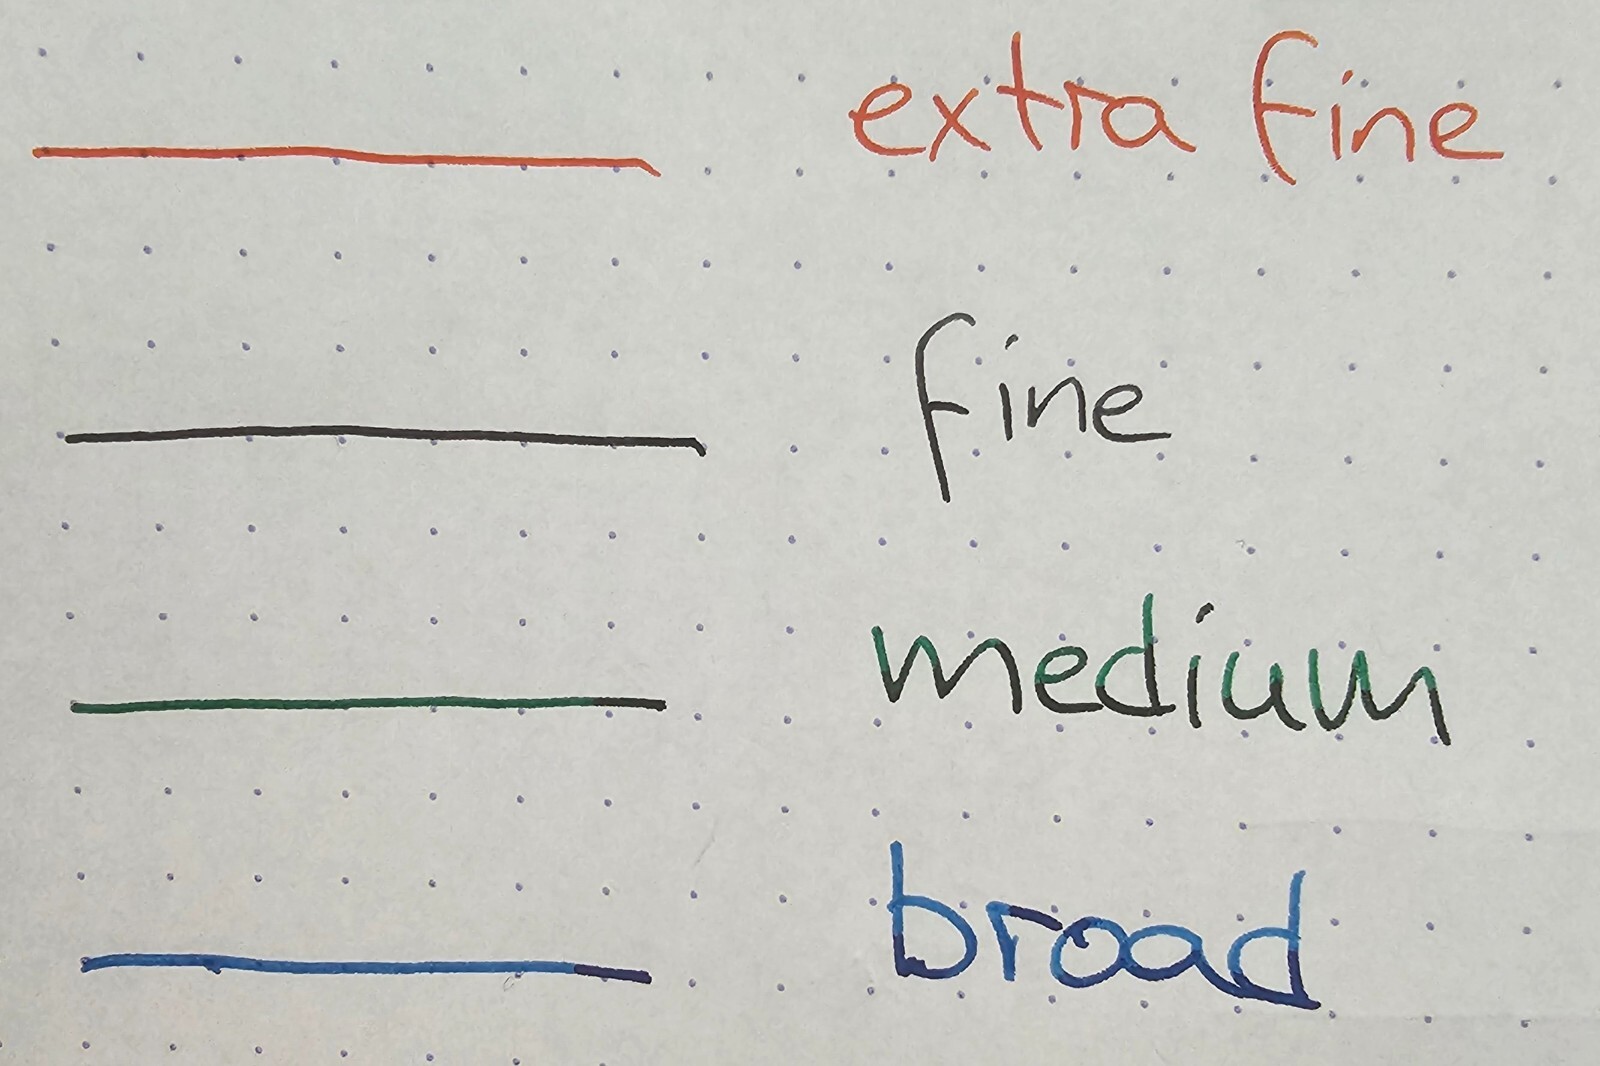 extra fine
fine
medium
broad